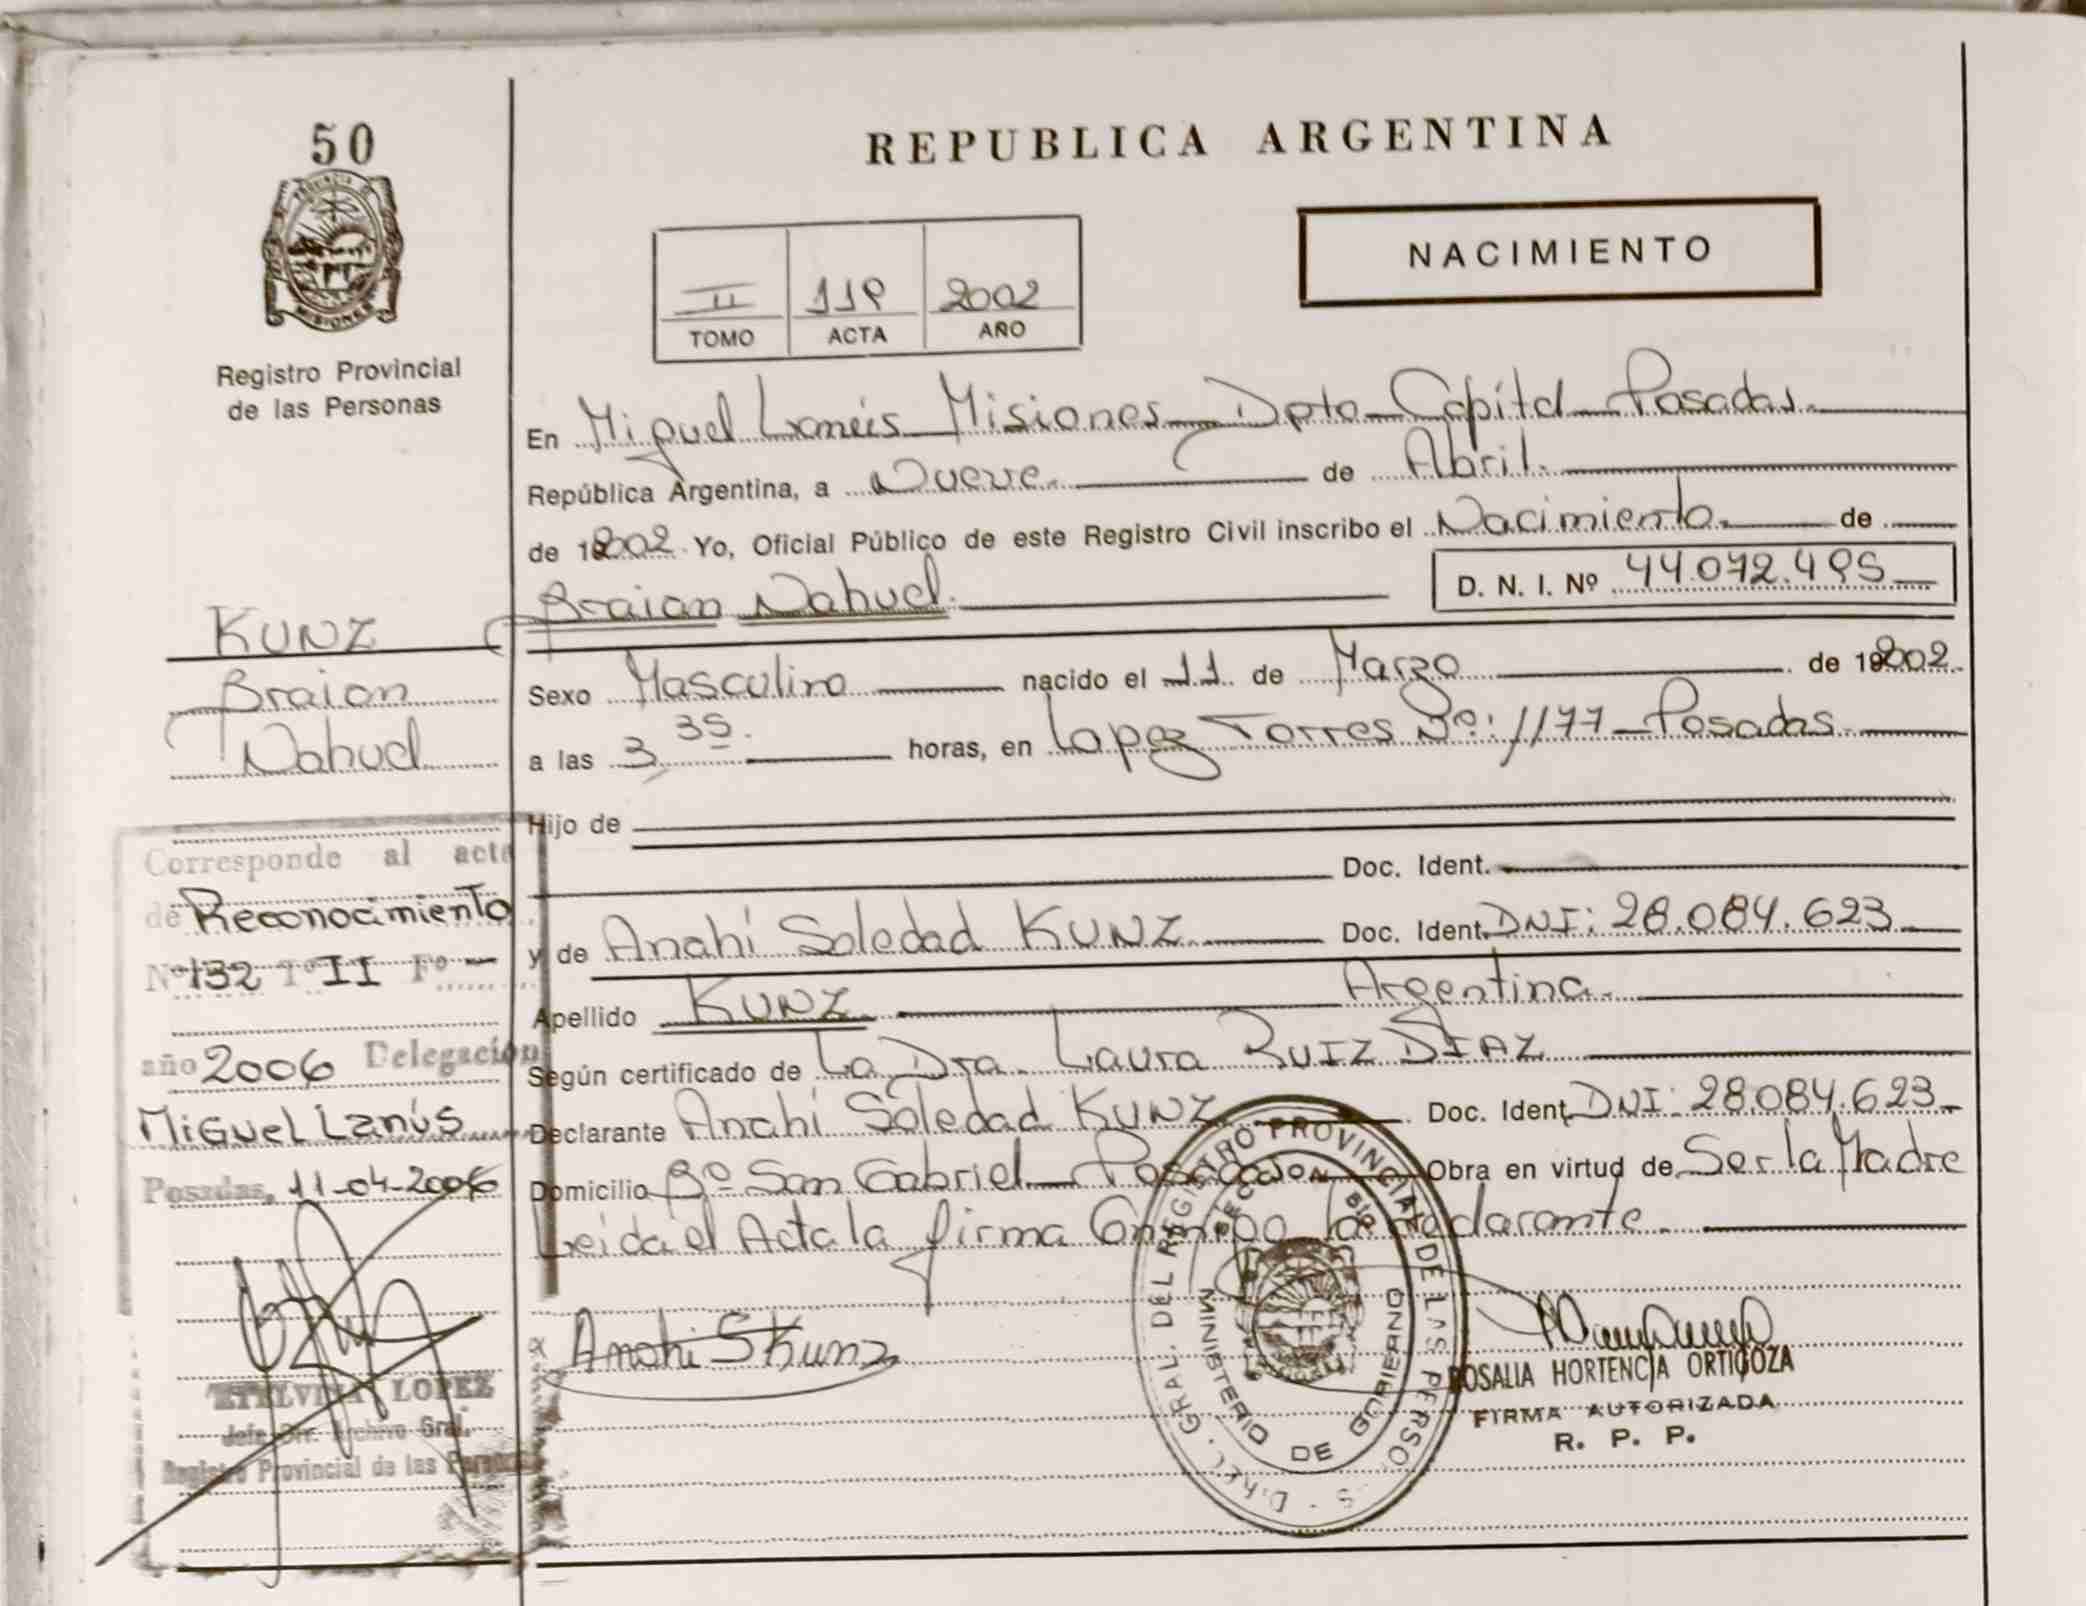 50
REPUBLICA ARGENTINA
NACIMIENTO
PROVINCIA DE MISIONES
Registro Provincial
de las Personas
II 119 2002
TOMO ACTA AÑO
En Miguel Lanús Misiones Dpto Capital Posadas.
República Argentina, a Nueve. de Abril.
de 2002. Yo, Oficial Público de este Registro Civil inscribo el Nacimiento. de
Braian Nahuel. D. N. I. Nº 44.072.495
KUNZ
Braian
Nahuel
Sexo Masculino nacido el 11 de Marzo de 2002.
a las 3 35. horas, en Lopez Torres Nº: 1177 - Posadas.
Hijo de
Doc. Ident.
y de Anahí Soledad KUNZ Doc. Ident. DNI: 28.084.623
Apellido KUNZ. Argentina.
Según certificado de La Dra. Laura RUIZ DIAZ
Declarante Anahí Soledad KUNZ. Doc. Ident. DNI: 28.084.623
Domicilio Bº San Gabriel - Posadas Obra en virtud de Ser la Madre
Leida el Acta la firma Conmigo la declarante.
Corresponde al acta
de Reconocimiento
Nº 132 Tº II Fº -
año 2006 Delegación
Miguel Lanús
Posadas, 11-04-2006
ETELVINA LOPEZ
Jefe Dir. Archivo Gral.
Registro Provincial de las Personas
Anahi S Kunz
DEL REGISTRO PROVINCIAL DE LAS PERSONAS
MINISTERIO DE GOBIERNO
ROSALIA HORTENCIA ORTIGOZA
FIRMA AUTORIZADA
R. P. P.